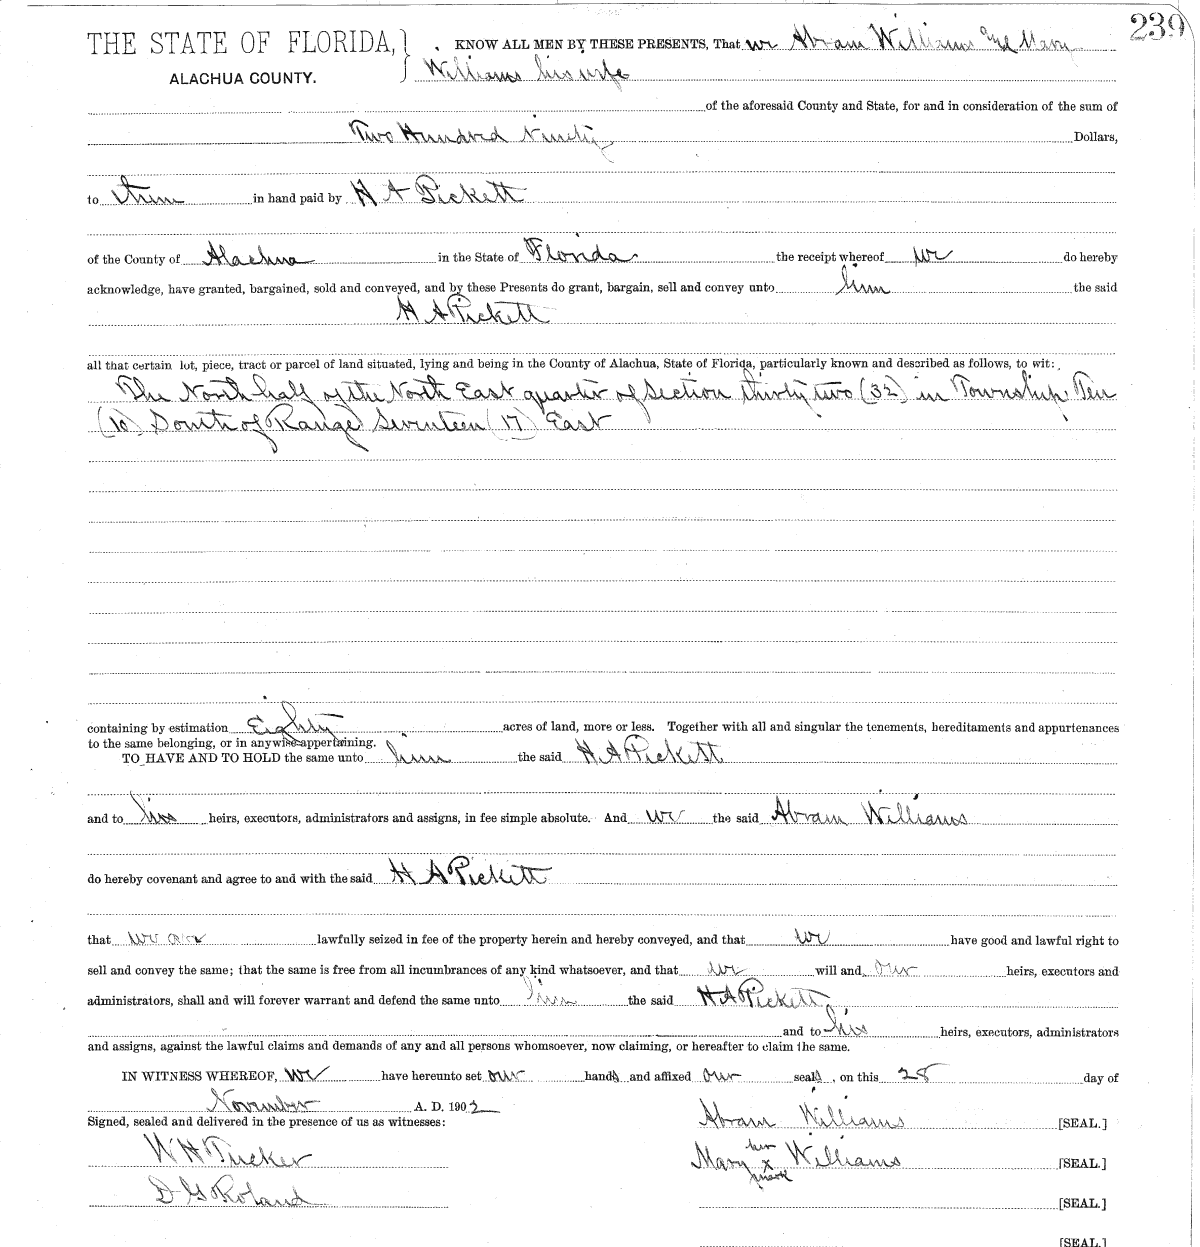 239
THE STATE OF FLORIDA,} KNOW ALL MEN BY THESE PRESENTS, That we Abram Williams and Mary
ALACHUA COUNTY. Williams his wife
of the aforesaid County and State, for and in consideration of the sum of
Two Hundred Ninety Dollars,
to them in hand paid by H A Pickett
of the County of Alachua in the State of Florida the receipt whereof we do hereby
acknowledge, have granted, bargained, sold and conveyed, and by these Presents do grant, bargain, sell and convey unto him the said
H A Pickett
all that certain lot, piece, tract or parcel of land situated, lying and being in the County of Alachua, State of Florida, particularly known and described as follows, to wit:
The North half of the North East quarter of Section thirty two (32) in Township Ten
(10) South of Range Seventeen (17) East
containing by estimation Eighty acres of land, more or less. Together with all and singular the tenements, hereditaments and appurtenances
to the same belonging, or in anywise appertaining.
TO HAVE AND TO HOLD the same unto him the said H A Pickett
and to his heirs, executors, administrators and assigns, in fee simple absolute. And we the said Abram Williams
do hereby covenant and agree to and with the said H A Pickett
that we are lawfully seized in fee of the property herein and hereby conveyed, and that we have good and lawful right to
sell and convey the same; that the same is free from all incumbrances of any kind whatsoever, and that we will and our heirs, executors and
administrators, shall and will forever warrant and defend the same unto him the said H A Pickett,
and to his heirs, executors, administrators
and assigns, against the lawful claims and demands of any and all persons whomsoever, now claiming, or hereafter to claim the same.
IN WITNESS WHEREOF, we have hereunto set our hands and affixed our seals, on this 28 day of
November A. D. 1902
Signed, sealed and delivered in the presence of us as witnesses: Abram Williams [SEAL.]
W H Tucker Mary her x mark Williams [SEAL.]
D G Roland [SEAL.]
[SEAL.]